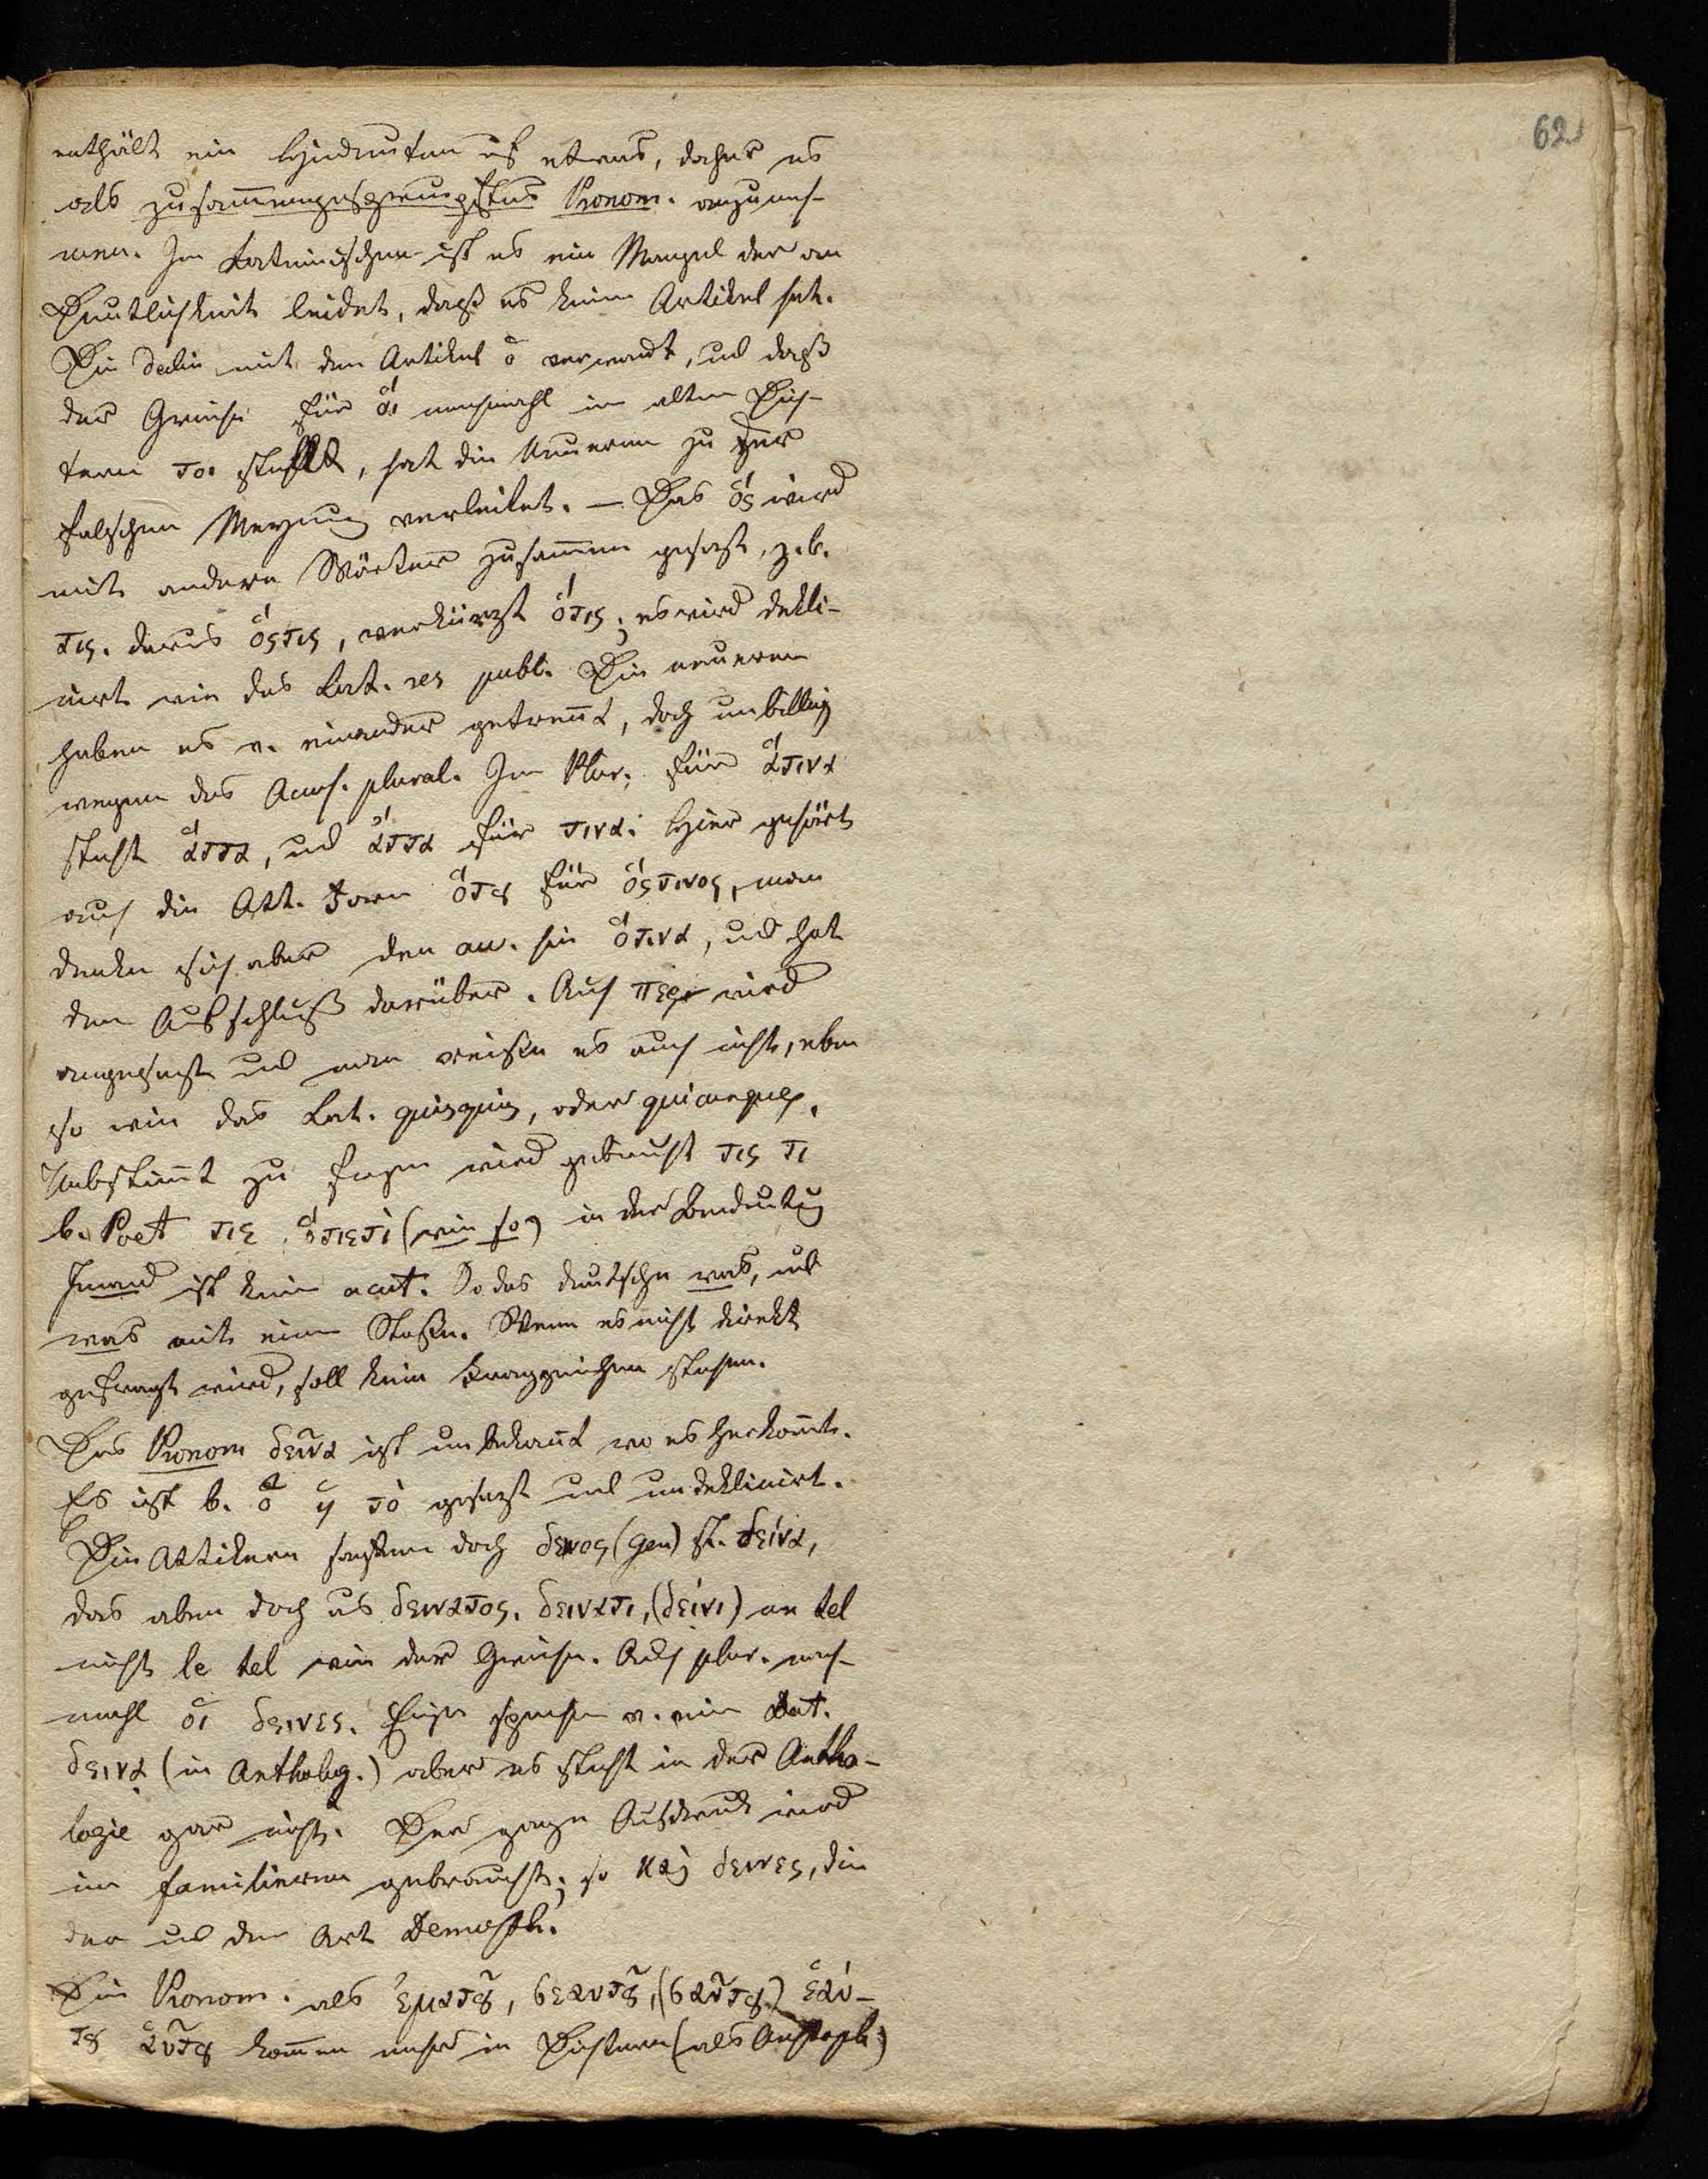 62
enthält ein Hindeuten uf etwas, daher es
als zusammengezwengtes Pronom. anzuneh-
men. Im Lateinischen ist es ein Mangel der an
Deutlichkeit leidet, daß es keine Artikel hat.
Die Decli. mit dem Artikel ὁ verwandt, und daß
der Grieche für οἱ manchmahl in alten Dich-
tern τοι steht, hat die Neueren zu der
falschen Meynung verleitet. — Das ὅς wird
mit andern Wörter zusammen gesetzt, z. b.
τις. daraus ὅςτις, verkürzt ὅτις; es wird dekli-
nirt wie das Lat. res publ. Die neueren
haben es v. einander getrennt, doch unbillig
wegen des Accus. plural. Im Plur. für ἅτινα
steht ἅττα, und ἄττα für τινα. Hier gehört
auch die Att. Form ὅτȣ für ὅςτινος, man
denke sich aber den acc. hin ὅτινα, und hat
den Aufschluß darüber. Auch περ wird
angehengt und man weiß es auch nicht, eben
so wie das Lat. quisquis, oder quicunque.
Unbestimt zu fragen wird gebraucht τις τι
b. Poet τιε ὅτιετι (wie so) in der Bedeutung
Jemand ist kein acut. So das deutsche was, und
was mit einem Stoßen. Wenn es nicht direkt
gefragt wird, soll kein Fragzeichen stehen.
Das Pronom δεῖνα ist unbekannt wo es herkomt.
Es ist b. ὁ ἡ τὸ gesezt und undeklinirt.
Die Attikern sagten doch δεινος (gen) st. δείνα,
das aber doch us δεινατος. δεινατι, (δείνι) un tel
nicht le tel wie der Grieche. Auch plur. manch-
mahl οἱ δεινες. Einige sprechen v. ein Dat.
δεινα (in Antholog.) aber es steht in der Antho-
logie gar nicht. Der ganze Ausdruck wird
im familieren gebraucht; so καὶ δεινες, die
der und der Art Demosth.
Die Pronom. als ἐματȣ͂, σεαυτȣ͂, (σαῦτȣ) ἑαύ-
τȣ αὗτȣ kommen mehr in Dichtern (als Aristoph)